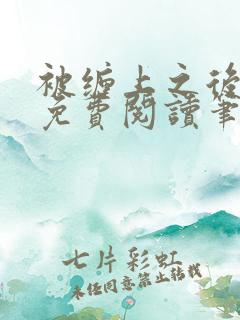 被缠上之後
免費閱讀筆
七片彩虹
未经同意禁止转载